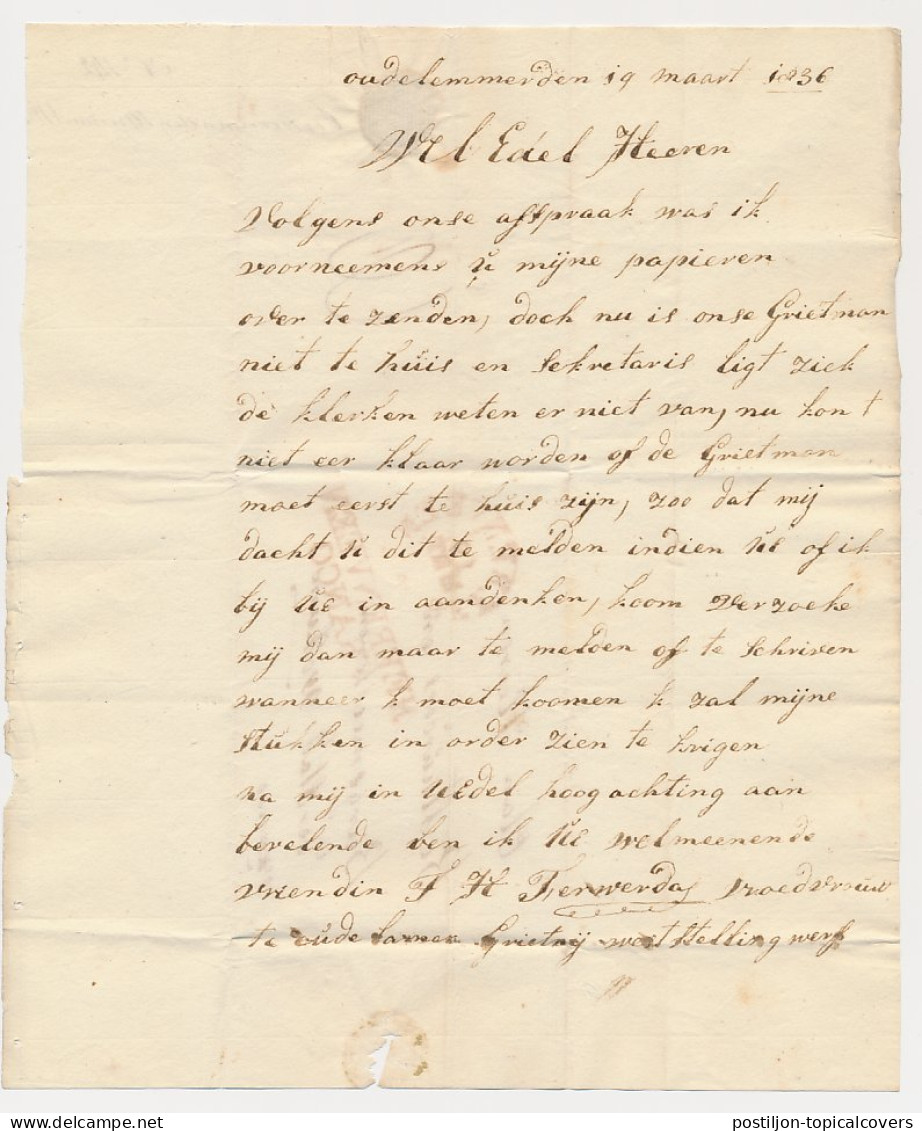 oudelemmerdën 19 maart 1836
Wel Edel Heeren
Volgens onse affpraak was ik
voorneemens u mijne papieren
over te zenden, doch nu is onse Grietman
niet te huis en Sekretaris ligt ziek
de klerken weten er niet van, nu kon t
niet eer klaar worden of de Grietman
moet eerst te huis zijn, zoo dat mij
dacht u dit te melden indien UE of ik
bij UE in aandenken, koom verzoeke
mij dan maar te melden of te Schriven
wanneer k moet koomen k zal mijne
Stukken in order zien te krigen
na mij in UEdel hoog achting aan
bevelende ben ik UE welmeenende
vriendin F H Ferwerda vroedvrouw
te oude Grietnij west Stelling werf
postiljon-topicalcovers